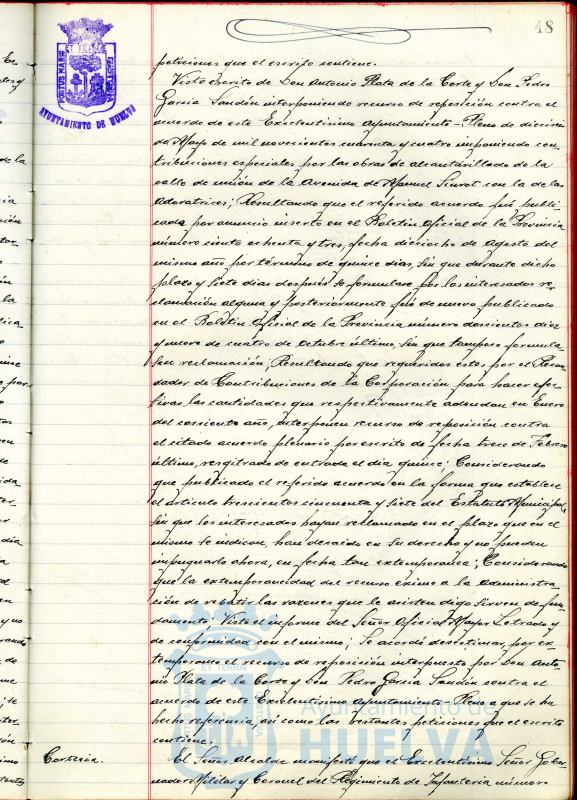 48
PORTUS MARIS ET TERRAE CUSTODIA
AYUNTAMIENTO DE HUELVA
peticiones que el escrito contiene.
Visto escrito de Don Antonio Plata de la Corte y Don Pedro
Garcia Sandón interponiendo recurso de reposición contra el
acuerdo de este Excelentísimo Ayuntamiento-Pleno de dieciseis
de Mayo de mil novecientos cuarenta y cuatro imponiendo con
tribuciones especiales por las obras de alcantarillado de la
calle de unión de la Avenida de Manuel Siurot con la de las
Adoratrices; Resultando que el referido acuerdo fué publi
cado por anuncio inserto en el Boletin Oficial de la Provincia
número ciento ochenta y tres, fecha dieciocho de Agosto del
mismo año por término de quince dias, sin que durante dicho
plazo y siete dias despues se formulase por los interesados re
clamación alguna y posteriormente fué de nuevo publicado
en el Boletin Oficial de la Provincia número doscientos diez
y nueve de cuatro de Octubre último, sin que tampoco formula
sen reclamación; Resultando que requeridos estos por el Recau
dador de Contribuciones de la Corporación para hacer efec
tivas las cantidades que respectivamente adeudan en Enero
del corriente año, interponen recurso de reposición contra
el citado acuerdo plenario por escrito de fecha trece de Febrero
último, resgitrado de entrada el dia quince; Considerando
que publicado el referido acuerdo en la forma que establece
el articulo trescientos cincuenta y siete del Estatuto Municipal,
sin que los interesados hayan reclamado en el plazo que en el
mismo se indican, han decaido en su derecho y no pueden
impugnarlo ahora, en fecha tan extemporanea; Considerando
que la extemporaneidad del recurso exime a la administra
ción de rebatir las razones que le asisten digo sirven de fun
damento; Visto el informe del Señor Oficial Mayor Letrado y
de conformidad con el mismo; Se acordó desestimar, por ex
temporaneo el recurso de reposición interpuesto por Don Anto
nio Plata de la Corte y Don Pedro Garcia Sandón contra el
acuerdo de este Excelentísimo Ayuntamiento Pleno a que se ha
hecho referencia, asi como las restantes peticiones que el escrito
contiene.
Ayuntamiento de
HUELVA
Carteria.
El Señor Alcalde manifestó que el Excelentísimo Señor Gober
nador Militar y Coronel del Regimiento de Infanteria número